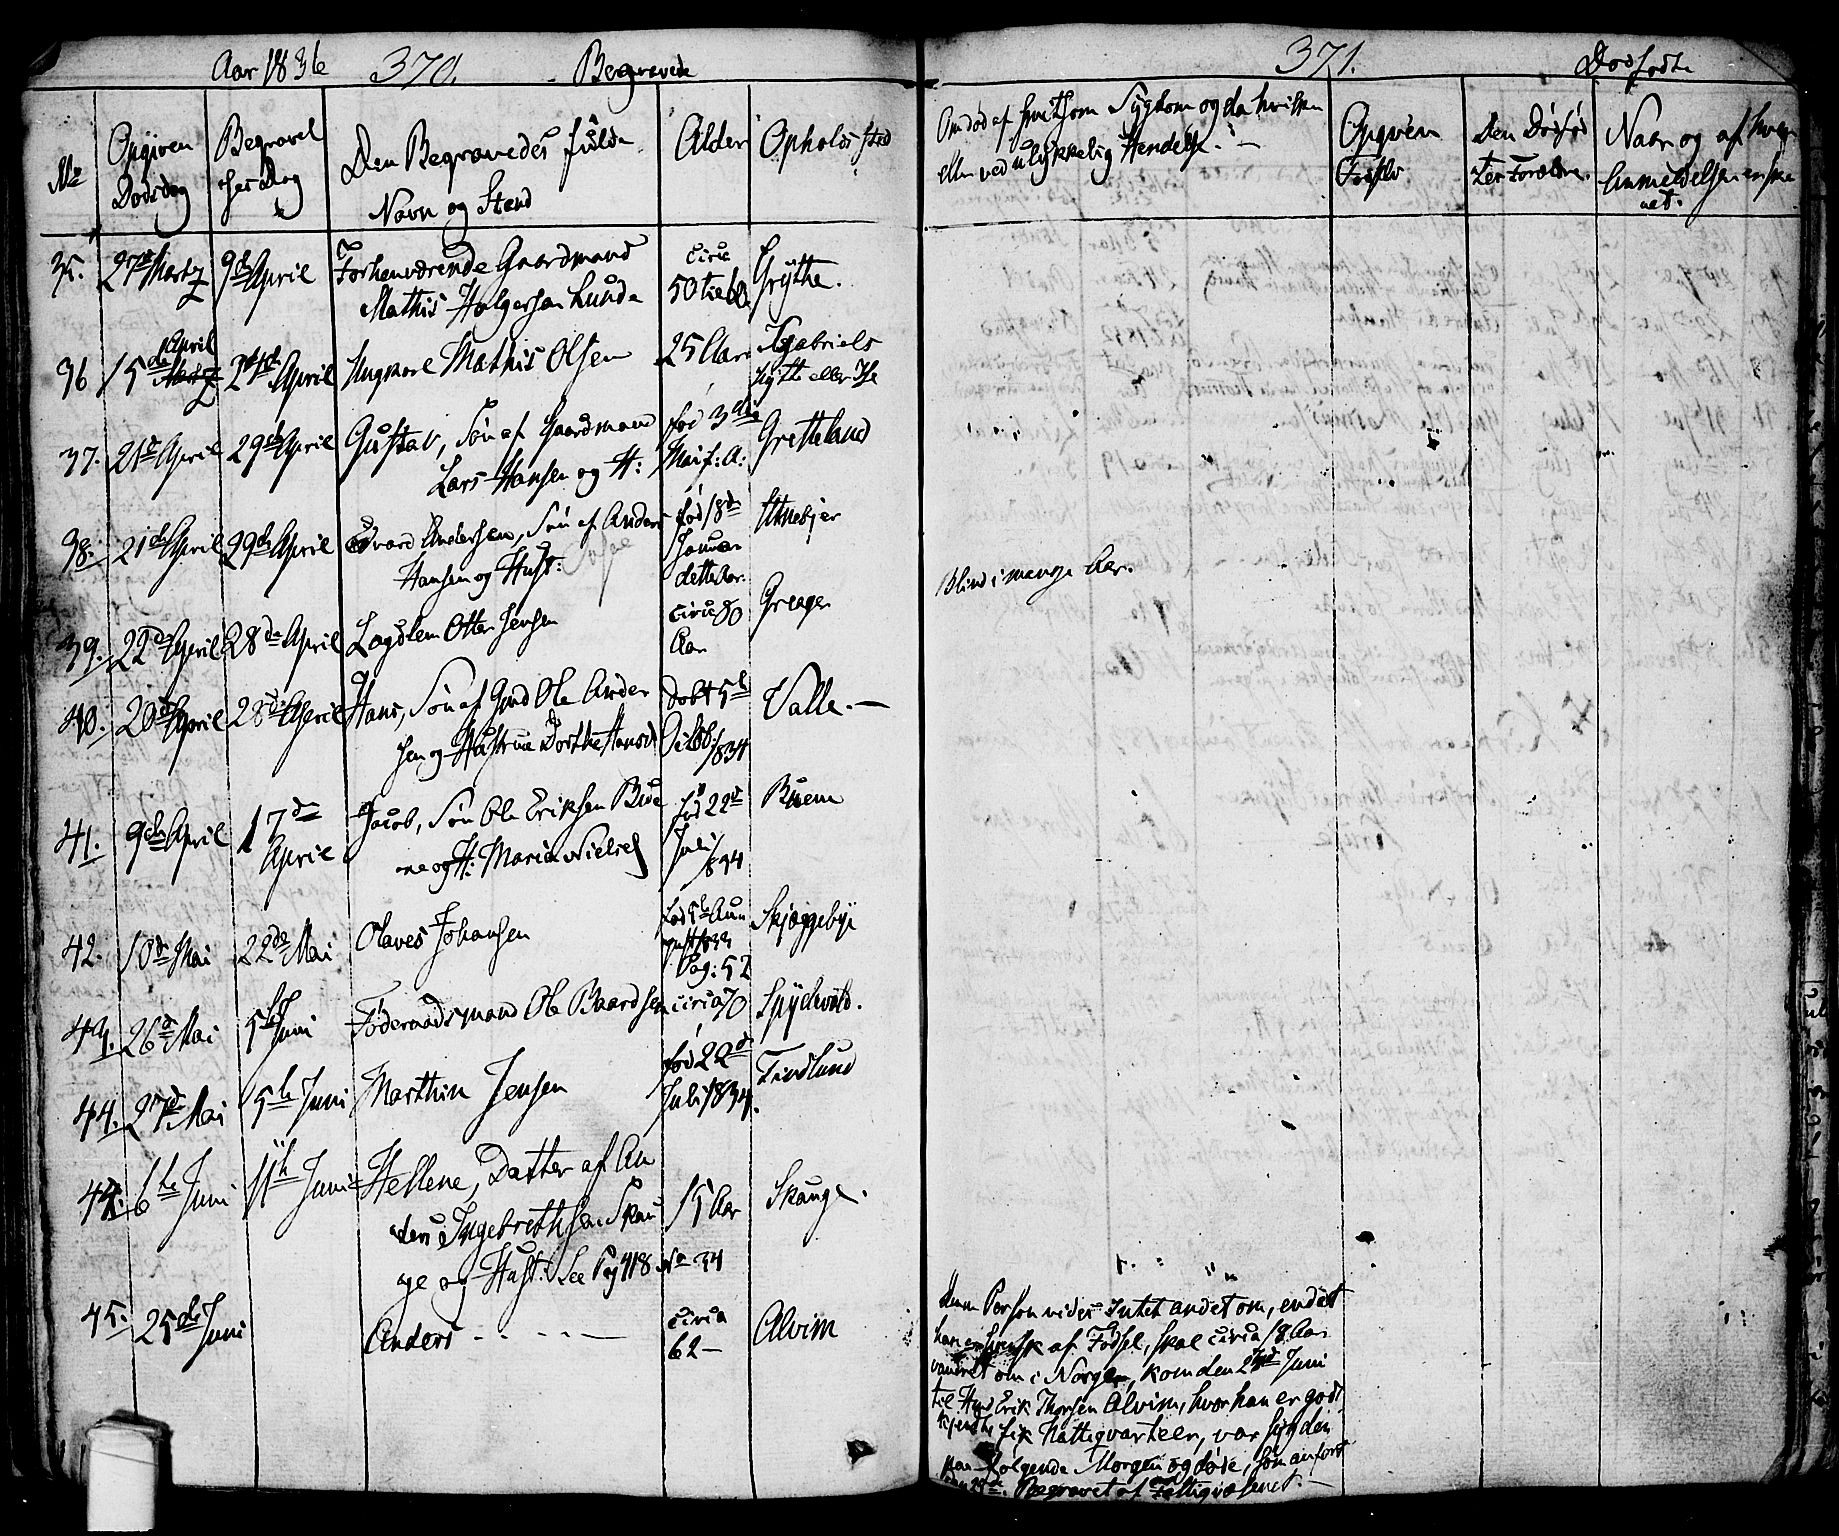 Aar 1836 370. Begravede
No
Opgiven Dødsdag
Begravelses Dag
Den Begravedes fulde
Navn og Stand
Alder
Opholds Sted
35. 27de Marts 9de April Forhenværende Gaardmand circa Grÿthe.
Mathis Holgersen Lunde 50
36 15de April 24de April Ungkarl Mathis Olsen 25 Aar
Hÿtte eller
37. 21de April 29de April Gustav, Søn af Gaardmand fød 3die Gretteland
Lars Hansen og H: Mai f: A:
38. 21de April 29de April Andersen, Søn af Anders fød 18de
Hansen og Hust: Januar
dette Aar.
39. 22de April 28de April Lægdslem Otter Jensen circa 80 Greager
Aar
40. 20de April 28de April Hans, Søn af Gmd Ole Ander Døbt 5te Valle.—
sen og Hustrue Dorthe Hansd Octob: 1834
41. 9de April 17de April Jacob, Søn Ole Eriksen Bue fød 22de Buem
ne og H: Maria Nielsd Juli 1834
42. 10de Mai 22de Mai Olaves Johansen fød 5te Au Skjøggebÿe
gust
Pag: 52
43. 26de Mai 5te Juni Føderaadsmand Ole Baardsen circa 70 Spÿdevold.
44. 27de Mai 5te Juni Marthin Jensen fød 22de Findlund
Juli 1834.
44. 6te Juni 11te Juni Hellene, Datter af An 15 Aar Skauge.
ders Ingebrethsen Skau
ge og Hust: See Pag 418 No 34
45. 25de Juni Anders - - - - — circa Alvim
62 —
371. Dødfødte
Om død af hvilksom Sÿgdom og da hvilken
eller ved ulykkelig Hendelse.—
Opgiven
Fødsels
Den Dødfød
tes Forældre.
Navn og af hvem
Anmeldelsen er skee
net.
Blind i mange Aar.
Denne Person vides Intet andet om, endat
han er Svensk af Fødsel, skal circa 18 Aar
vandret om i Norge, kom den Juni
til Gmd Erik Thorsen Alvim, hvor han er godt
kjendt fik Nattqvarteer, var sÿg den
paa følgende Morgen og døde, som anført
den 25de. Begravet af Fattigvæsenet.—